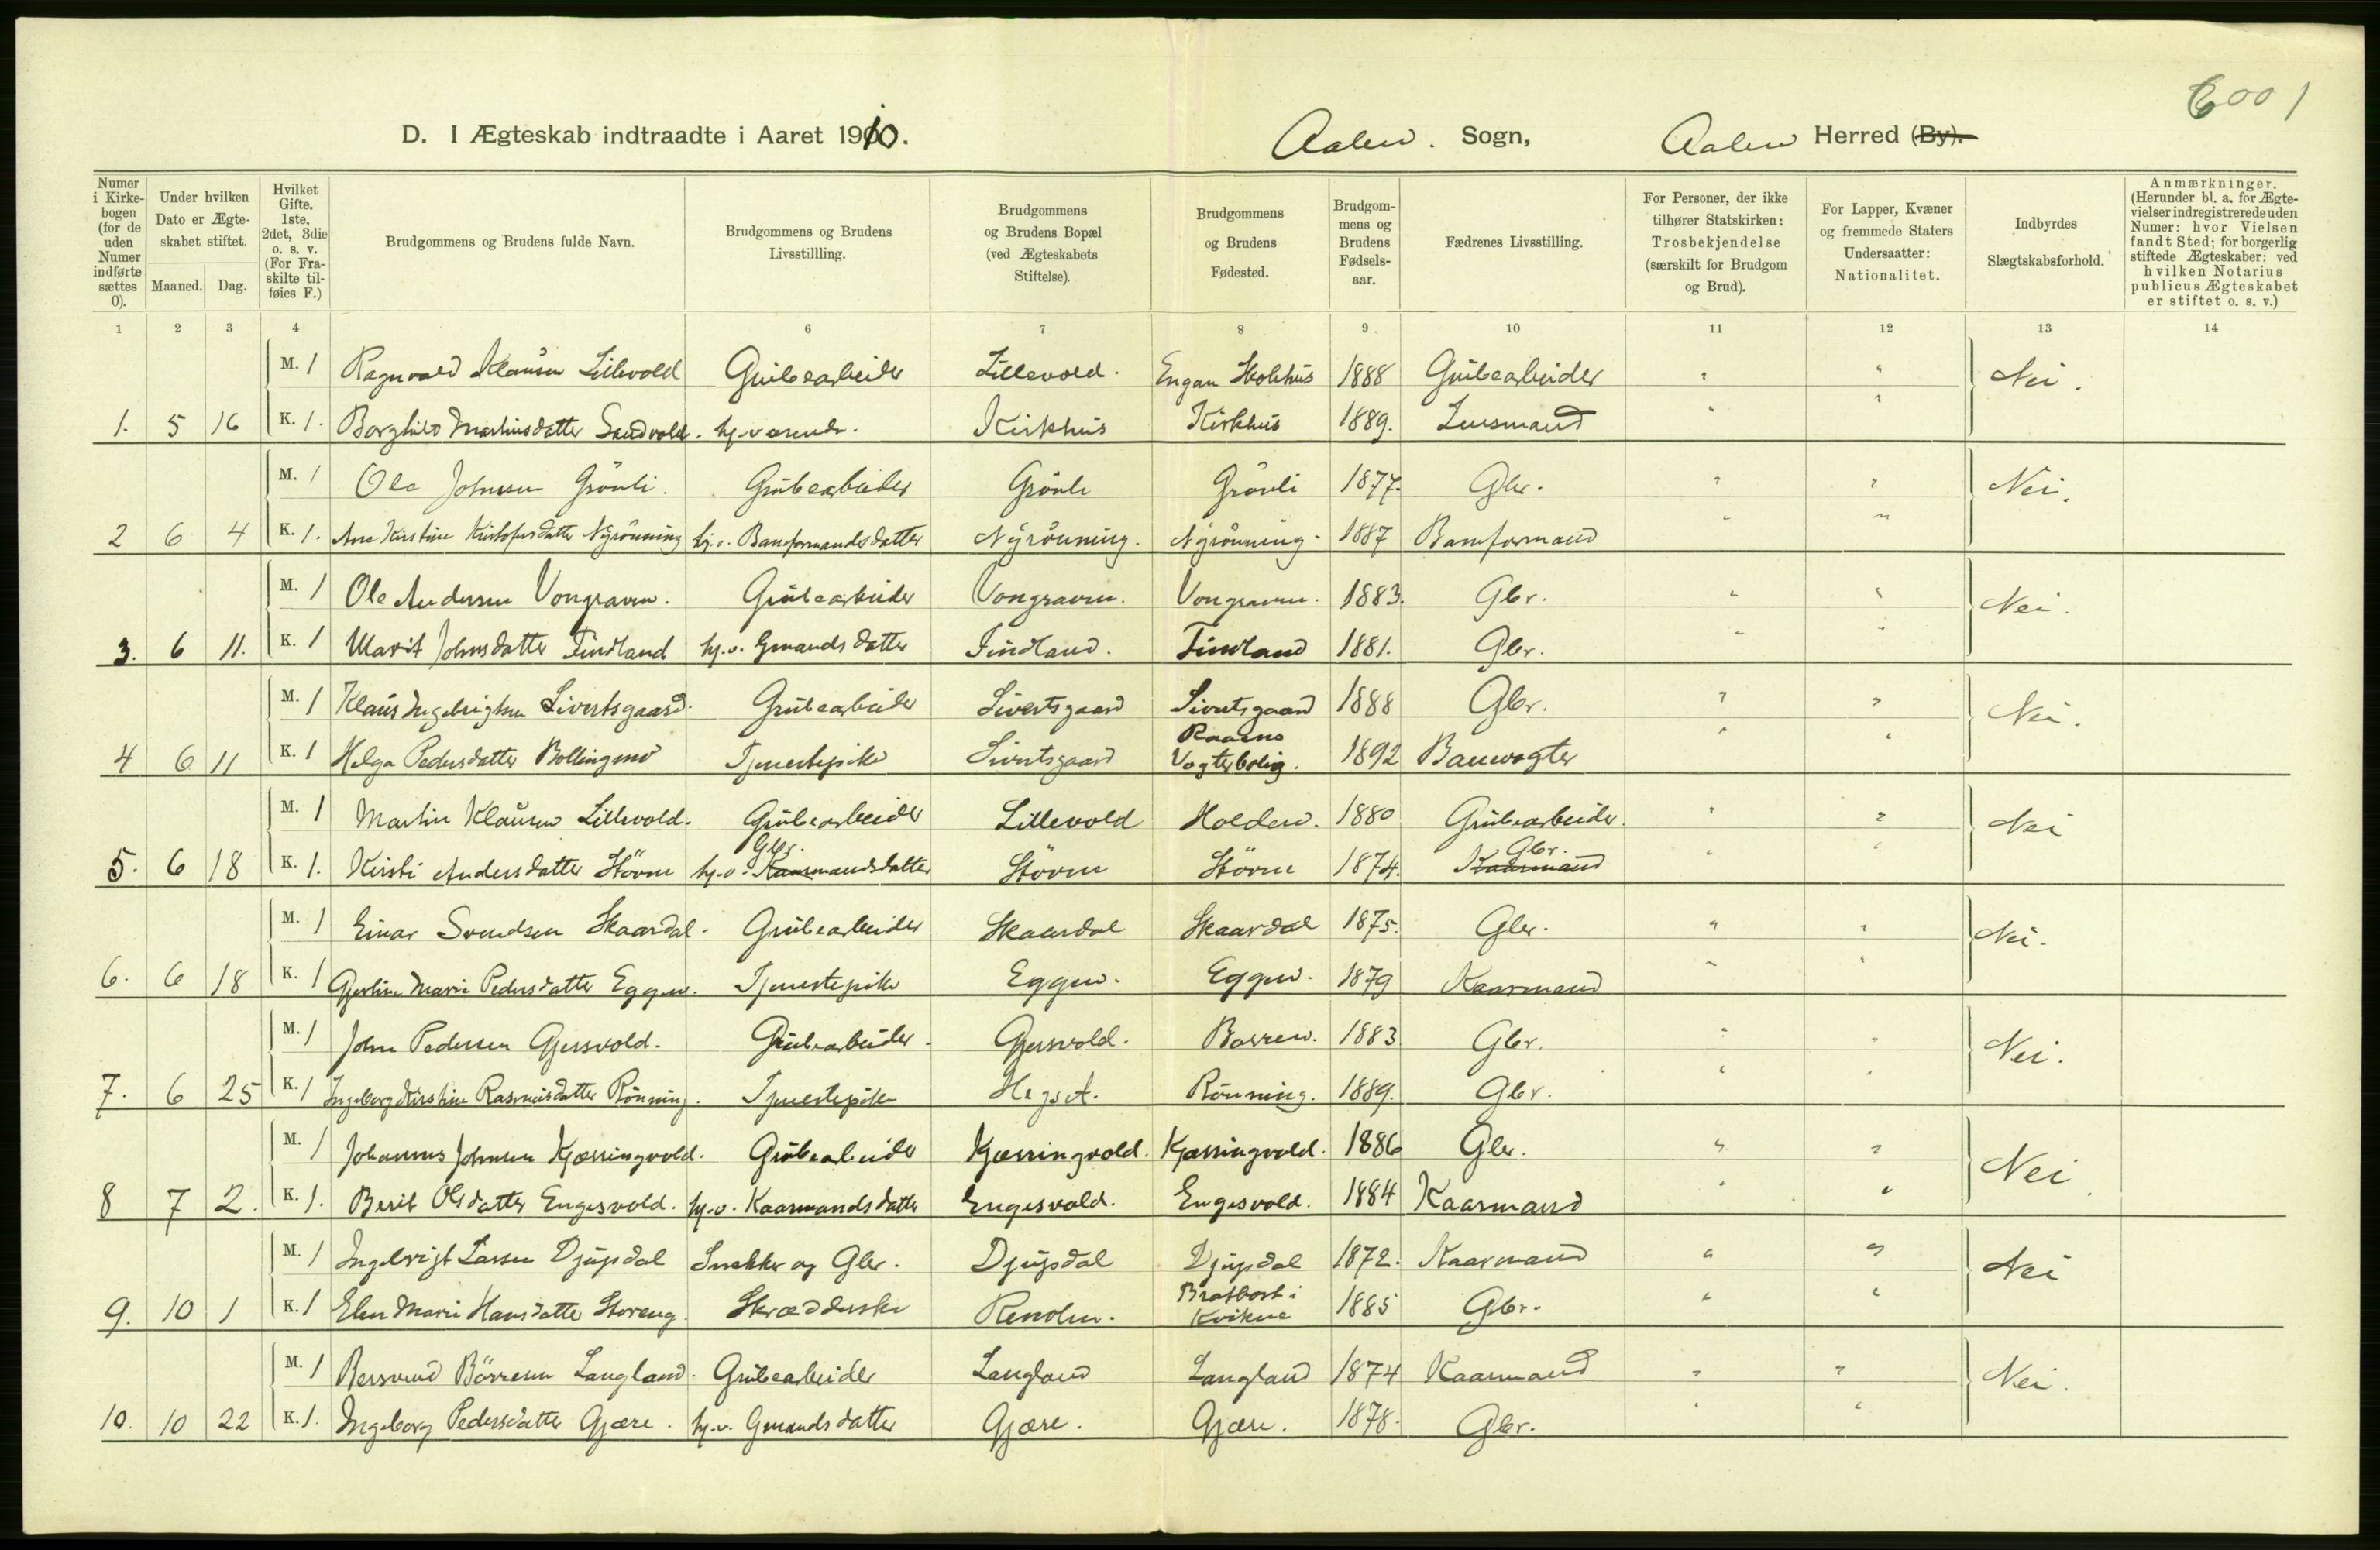 6001
D. I Ægteskab indtraadte i Aaret 1910. Aalen. Sogn, Aalen Herred (By).
Numer i Kirkebogen (for de uden Numer indførte sættes 0).
Under hvilken Dato er Ægteskabet stiftet.
Maaned. Dag.
Hvilket Gifte. 1ste, 2det, 3die o. s. v. (For Fraskilte tilføies F.)
Brudgommens og Brudens fulde Navn.
Brudgommens og Brudens Livsstillling.
Brudgommens og Brudens Bopæl (ved Ægteskabets Stiftelse).
Brudgommens og Brudens Fødested.
Brudgommens og Brudens Fødselsaar.
Fædrenes Livsstilling.
For Personer, der ikke tilhører Statskirken: Trosbekjendelse (særskilt for Brudgom og Brud).
For Lapper, Kvæner og fremmede Staters Undersaatter: Nationalitet.
Indbyrdes Slægtskabsforhold.
Anmærkninger. (Herunder bl. a. for Ægtevielser indregistrerede uden Numer: hvor Vielsen fandt Sted; for borgerlig stiftede Ægteskaber: ved hvilken Notarius publicus Ægteskabet er stiftet o. s. v.)
1 2 3 4 6 7 8 9 10 11 12 13 14
M. 1 Ragnvald Klausen Lillevold Grubearbeider Lillevold. Engan 1888 Grubearbeider " " Nei.
1. 5 16 K. 1. Borghild Martinusdatter Sandvold. hj. værende. Kirkhus Kirkhus 1889. Lensmand " "
M. 1 Ole Johnsen Grönli. Grubearbeider Grönli Grönli 1877. Gbr. " " Nei.
2 6 4 K. 1. Ane Kirstine Kristofersdatter Nyrönning hj. v. Banformandsdatter Nyrönning. Nyrönning. 1887 Banformand " "
M. 1 Ole Andersen Vongraven. Grubearbeider Vongraven. Vongraven. 1883. Gbr. " " Nei.
3. 6 11. K. 1 Marit Johnsdatter Findland hj. v. Gmandsdatter Findland. Findland 1881. Gbr. " "
M. 1 Klaus Ingebrigtsen Sivertsgaard. Grubearbeider Sivertsgaard Sivertsgaard 1888 Gbr. " " Nei.
4 6 11 K. 1 Helga Pedersdatter Bollingmo Tjenestepike Sivertsgaard Raaens Vogterbolig. 1892 Banevogter " "
M. 1 Martin Klausen Lillevold. Grubearbeider Lillevold Holden. 1880 Grubearbeider. " " Nei
5. 6 18 K. 1. Kirsti Andersdatter Stören hj. v. Gbr. Kaarmandsdatter Stören Stören 1874. Gbr. Kaarmand " "
M. 1 Einar Svendsen Skaardal. Grubearbeider Skaardal Skaardal 1875. Gbr. " " Nei.
6. 6 18 K. 1 Gjertine Marie Pedersdatter Eggen. Tjenestepike Eggen. Eggen. 1879 Kaarmand " "
M. 1 John Pedersen Gjersvold. Grubearbeider. Gjersvold. Borren. 1883 Gbr. " " Nei.
7. 6 25 K. 1 Ingeborg Kirstine Rasmusdatter Rönning. Tjenestepike Hegset. Rönning. 1889. Gbr. " "
M. 1 Johannes Johnsen Kjærringvold. Grubearbeider Kjærringvold. Kjærringvold. 1886 Gbr. " " Nei
8 7 2. K. 1. Berit Olsdatter Engesvold. hj. v. Kaarmandsdatter Engesvold. Engesvold. 1884 Kaarmand " "
M. 1 Ingebrigt Larsen Djupdal Snekker og Gbr. Djupdal Djupdal 1872. Kaarmand " " Nei
9. 10 1 K. 1 Elen Marie Hansdatter Storeng. Skrædderske Renolen. Bratbost i Kvikne 1885 Gbr. " "
M. 1 Bersvend Börresen Langland. Grubearbeider Langland Langland 1874 Kaarmand " " Nei.
10. 10 22 K. 1. Ingeborg Pedersdatter Gjære. hj. v. Gmandsdatter Gjære. Gjære. 1878. Gbr. " "